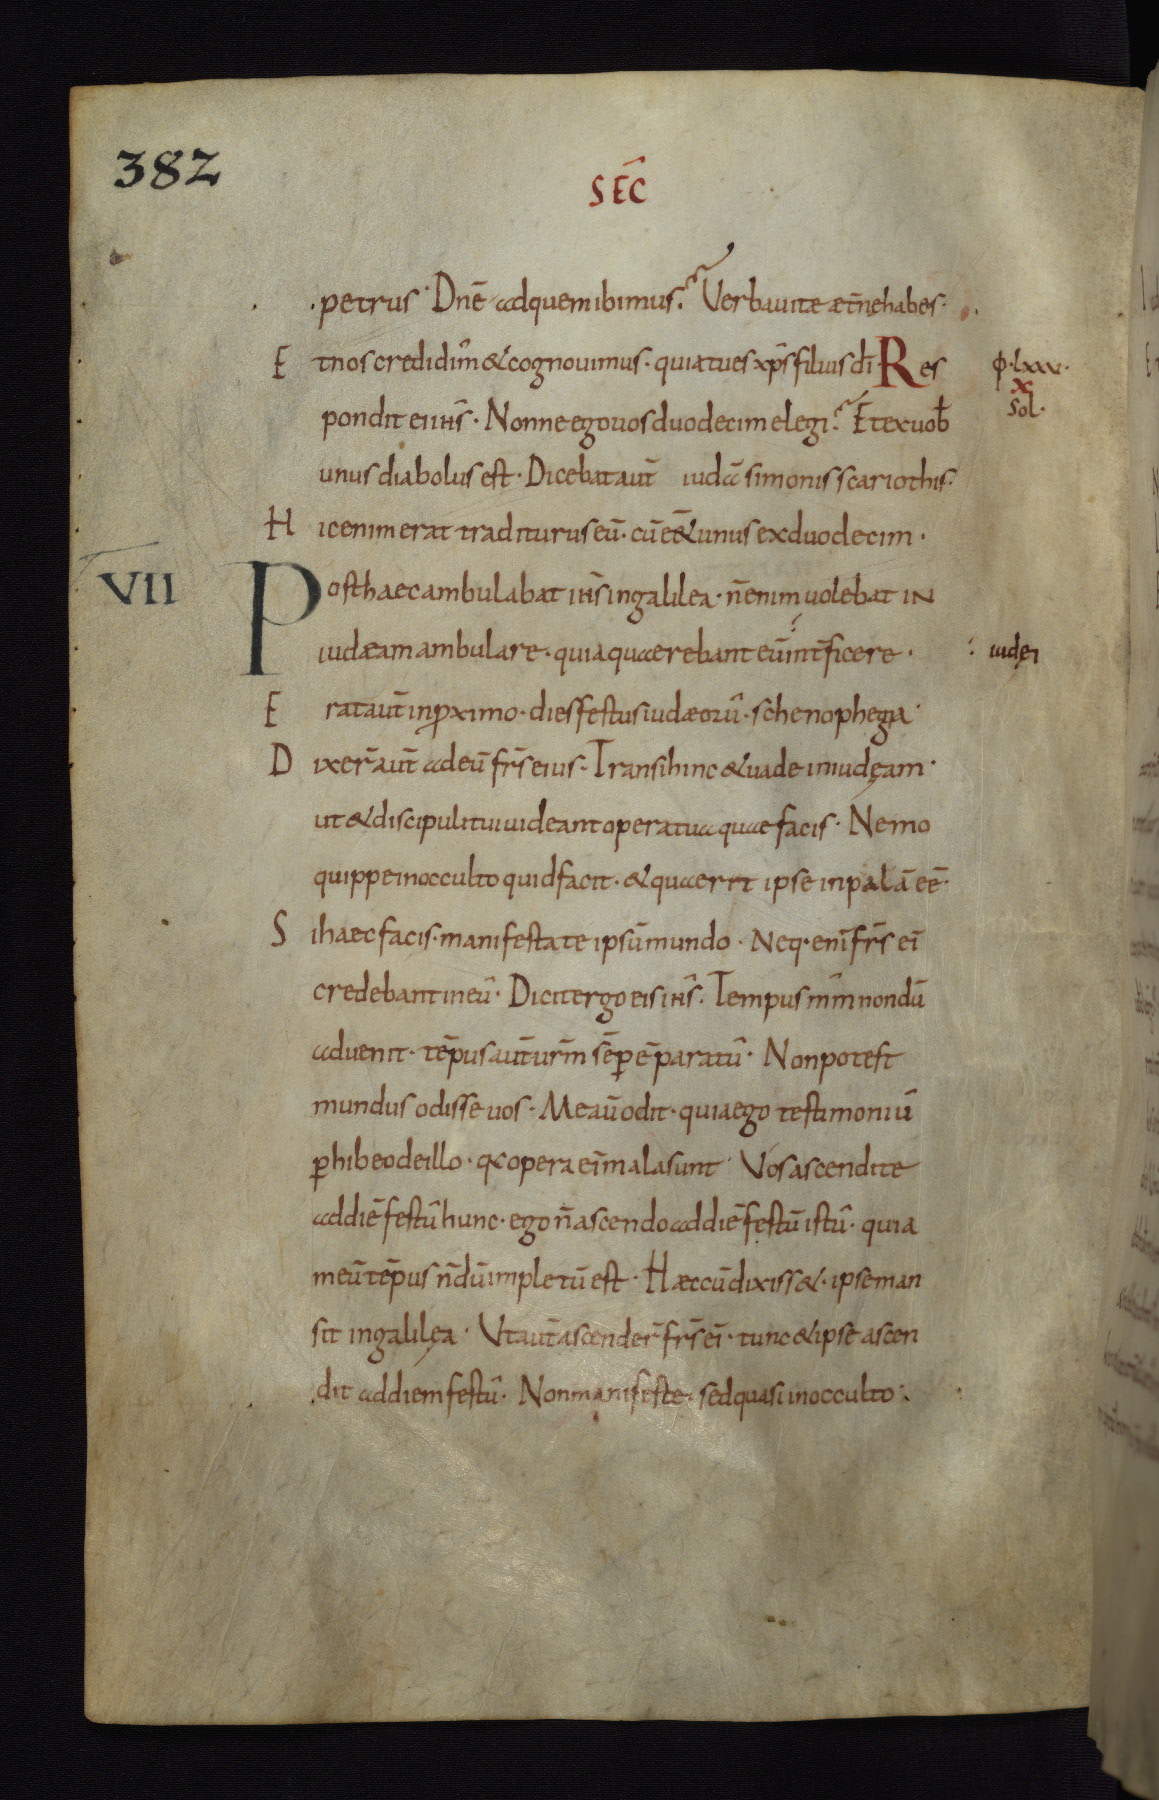 382
SEC̄
petrus· Dnē ad quem ibimus? Verba uitæ æt̄nę habes·
Et nos credidim̄ & cognouimus· quia tu es xp̄s filius dī· Res φ·lxxx·
x
pondit ei ih̄s· Nonne ego uos duodecim elegi? Et ex uob̄ sol·
unus diabolus est· Dicebat aut̄ iudā simonis scariothis·
Hic enim erat traditurus eū· cū eēt & unus ex duodecim·
VII Post haec ambulabat ih̄s in galilea· n̄ enim uolebat in
iudæam ambulare· quia quaerebant eū int̄ficere· : iudęi
Erat aut̄ in proximo· dies festus iudæorū· schenophegia·
Dixer̄ aut̄ ad eū fr̄s eius· Transi hinc & uade in iudęam·
ut & discipuli tui uideant opera tua quae facis· Nemo
quippe in occulto quid facit· & quaerit ipse in palā eē·
Si haec facis· manifesta te ipsū mundo· Neq· enī fr̄s eī
credebant in eū· Dicit ergo eis ih̄s· Tempus m̄m nondū
aduenit· tēpus aut̄ ur̄m sēp ē paratū· Non potest
mundus odisse uos· Me aū odit· quia ego testimoniū
ꝑhibeo de illo· qꝛ opera eī mala sunt· Vos ascendite
ad diē festū hunc· ego n̄ ascendo ad diē festū istū· quia
meū tēpus n̄dū impletū est· Hæc cū dixiss&· ipse man
sit in galilęa· Vt aut̄ ascender̄ fr̄s eī· tunc & ipse ascen
dit ad diem festū· Non manifeste· sed quasi in occulto·